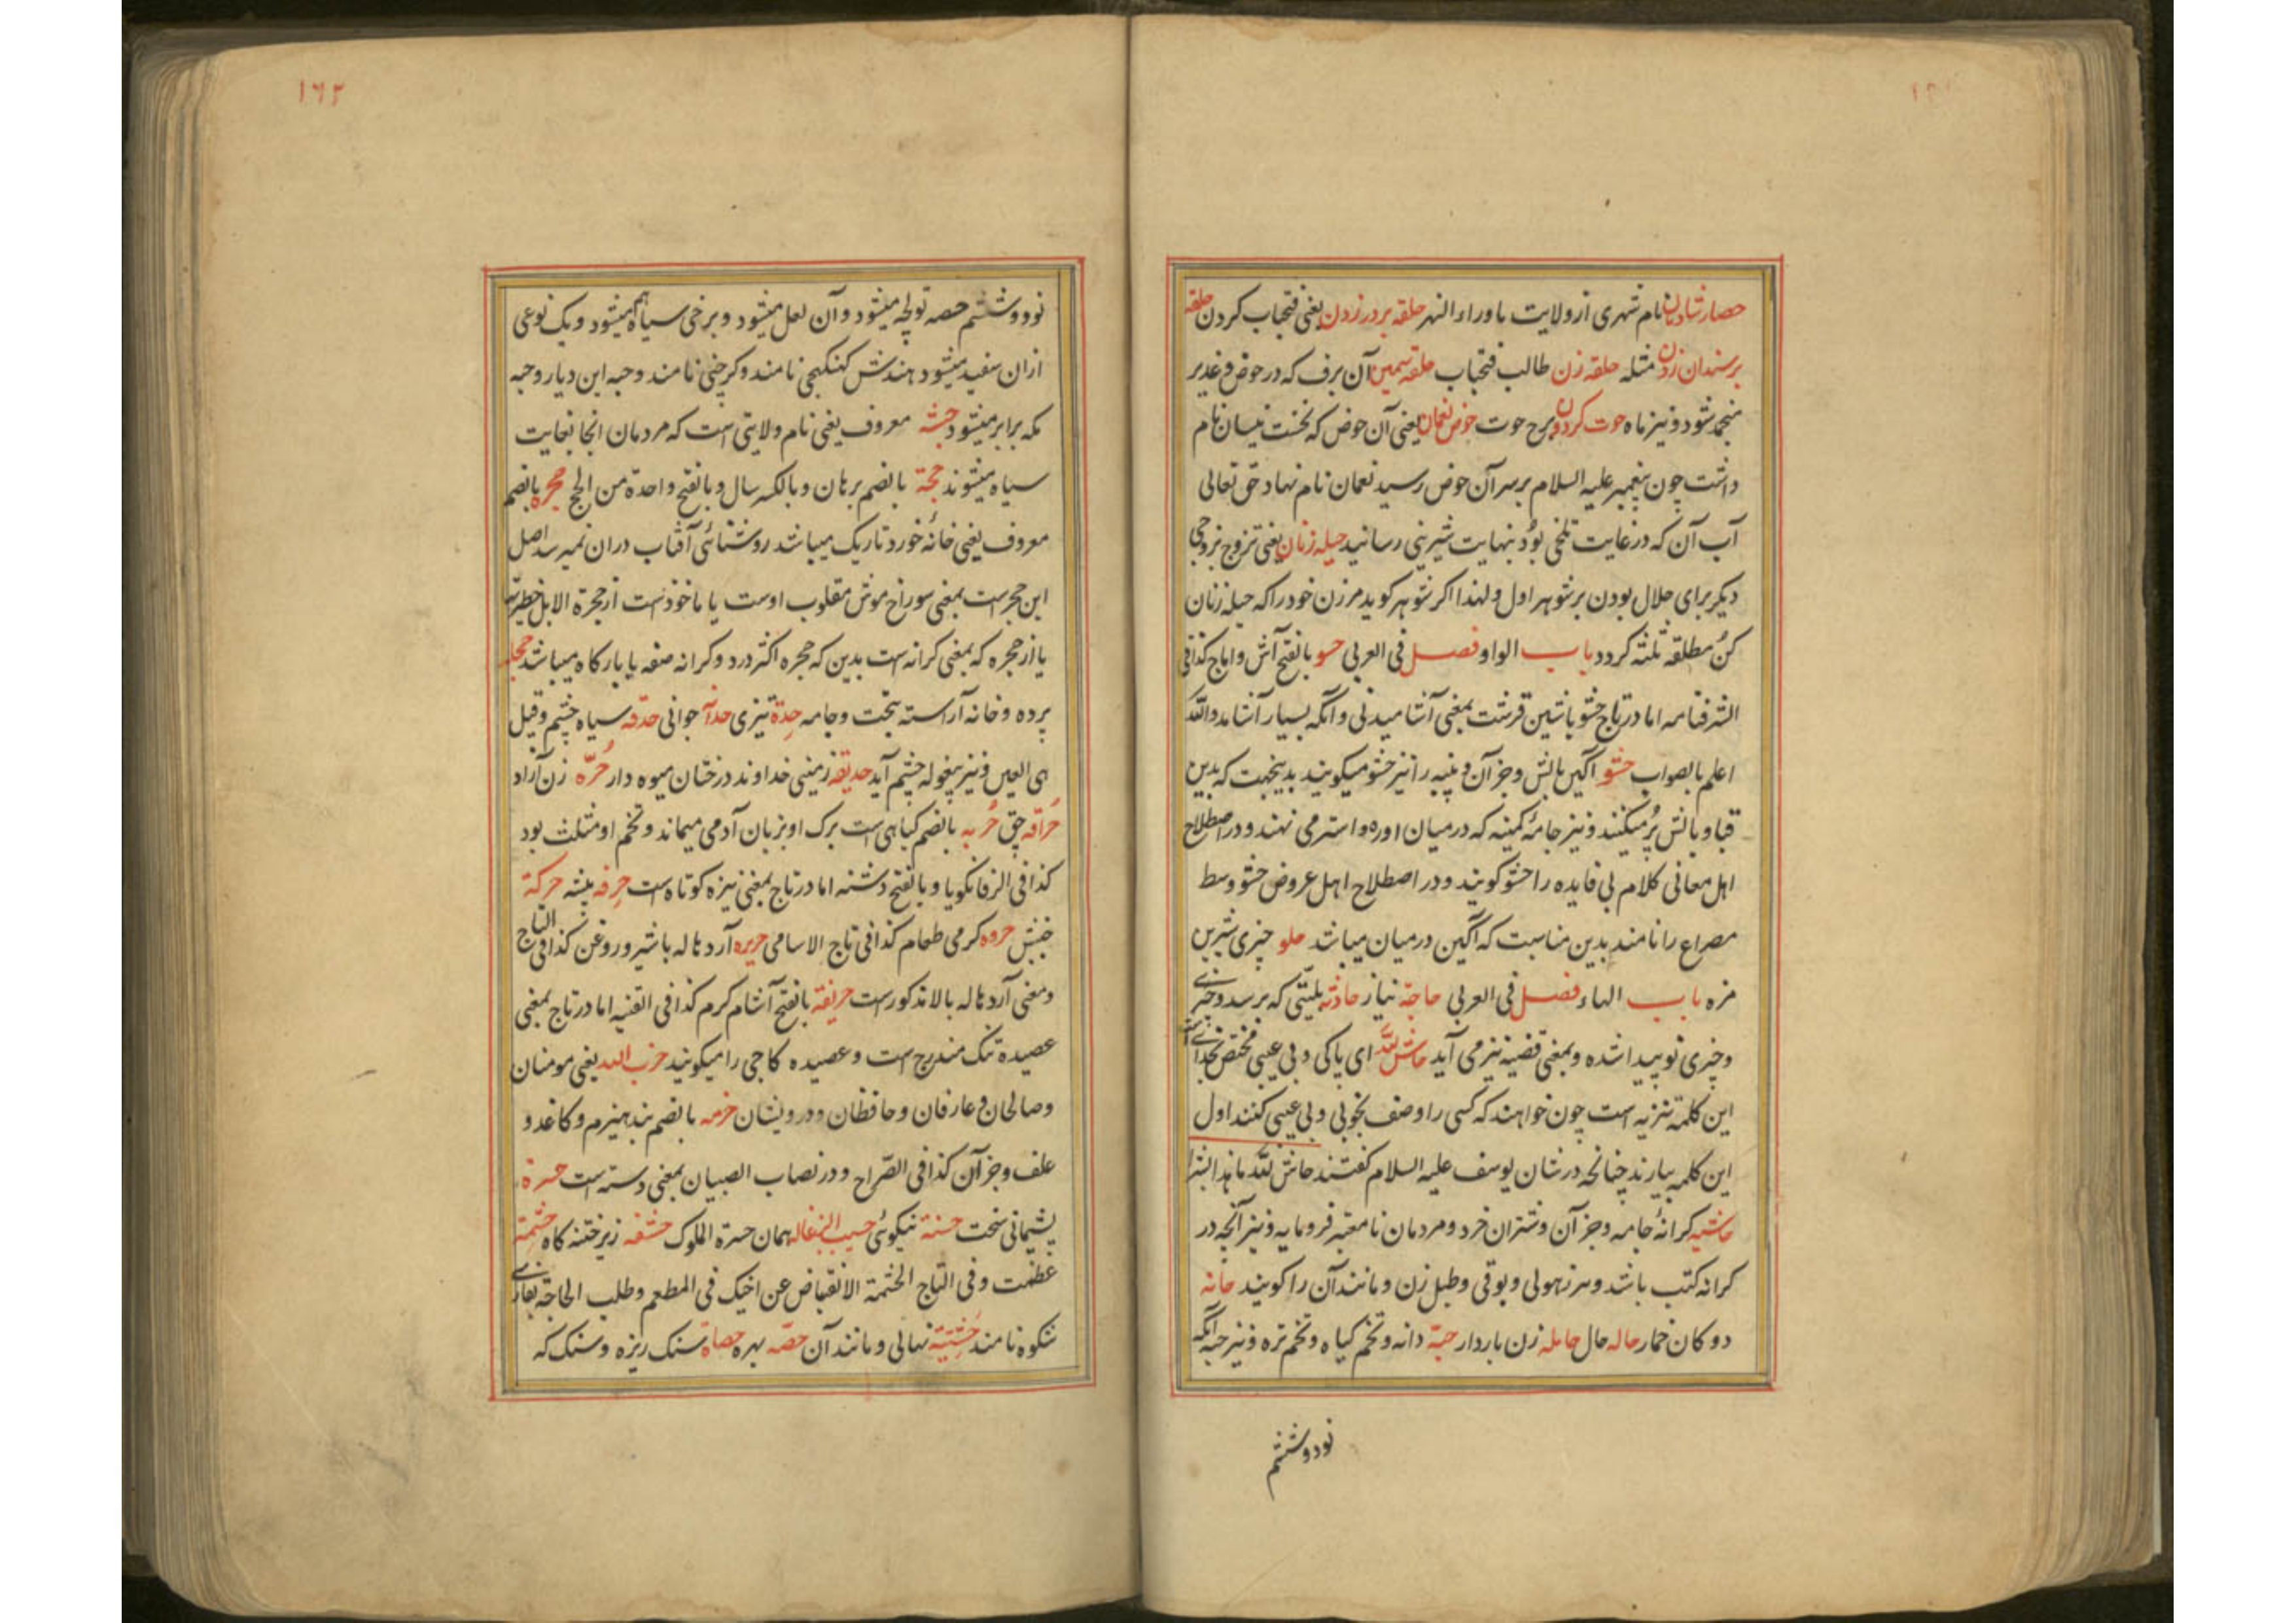 حصار شادمان نام شهری از ولایت ماوراء النهر حلقه بر در زدن یعنی فتحباب کردن حلقه
بر سندان زدن مثله حلقه زن طالب فتحباب حلقه سیمین آن برف که در حوض و غدیر
منجمد شود و نیز ماه حوت کردون برج حوت حوض نعمان یعنی آن حوض که نخست نیسان نام
داشت چون پیغمبر علیه السلام بر سر آن حوض رسید نعمان نام نهاد حق تعالی
آب آن که در غایت تلخی بود بنهایت شیرینی رسانید حیله زنان یعنی تزوج بزوجی
دیکر برای حلال بودن بر شوهر اول و لهذا اکر شوهر کوید مر زن خود را که حیله زنان
کن مطلقه ثلثه کردد باب الواو فصل فی العربی حسو بالفتح آش و اماج کذا فی
الشرفنامه اما در تاج حشو باشین قرشت بمعنی آشامیدنی و آنکه بسیار آشامد والله
اعلم بالصواب حشو آکین بالش و جز آن و پنبه را نیز حشو میکویند بدینجهت که بدین
قبا و بالش پر میکنند و نیز جامه کمینه که در میان اوره و استر می نهند و در اصطلاح
اهل معانی کلام بی فایده را حشو کویند و در اصطلاح اهل عروض حشو وسط
مصراع را نامند بدین مناسبت که آکین در میان میباشد حلو چیزی شیرین
مزه باب الهاء فصل فی العربی حاجة نیاز حادثه بلیتی که برسد و چیزی
و چیزی نو پیدا شده و بمعنی قضیه نیز می آید حاش لله ای پاکی و بی عیبی مختص بخدای است
این کلمه تنزیه است چون خواهند که کسی را وصف بخوبی و بی عیبی کنند اول
این کلمه بیارند چنانچه در شان یوسف علیه السلام کفتند حاش لله ما هذا بشرا
حاشیه کرانه جامه و جز آن و شتران خرد و مردمان نامعتبر فرومایه و نیز آنچه در
کرانه کتب باشد و سرزهولی و بوقی و طبل زن و مانند آن را کویند حانه
دوکان خمار حاله حال حامله زن باردار حبة دانه و تخم کیاه و تخم تره و نیز حبه آنکه
نود و ششم
١٦٢
نود و ششم حصه تولچه میشود و آن لعل میشود و برخی سیاه هم میشود و یک نوعی
ازان سفید میشود هندش کنکچی نامند و کرچنی نامند و حبه این دیار و حبه
مکه برابر میشود حبشه معروف یعنی نام ولایتی است که مردمان آنجا بغایت
سیاه میشوند حجة بالضم برهان و بالکسر سال و بالفتح واحدة من الحج حجره بالضم
معروف یعنی خانه خورد تاریک میباشد روشنائی آفتاب دران نمیرسد اصل
این حجر است بمعنی سوراخ موش مقلوب اوست یا ماخوذست از حجرة الابل
یا از حجره که بمعنی کرانه است بدین که حجره اکثر در دو کرانه صفه یا بارکاه میباشد حجله
پرده و خانه آراسته بتخت و جامه حدة تیزی حداثه جوانی حدقه سیاه چشم و قیل
هی العین و نیز پیغوله چشم آید حدیقه زمینی خداوند درختان میوه دار حره زن آزاد
حراقه چق حربه بالضم کیاهی است برک او بزبان آدمی میماند و تخم او مثلث بود
کذا فی الزفانکویا و بالفتح دشنه اما در تاج بمعنی نیزه کوتاه است حرفه پیشه حرکة
جنبش حروه کرمی طعام کذا فی تاج الاسامی حریره آرد هاله باشیر و روغن کذا فی التاج
و معنی آرد هاله بالا مذکورست حریفة بالفتح آشام کرم کذا فی القنیه اما در تاج بمعنی
عصیده تنک مندرج است و عصیده کاچی را میکویند حزب الله یعنی مومنان
و صالحان و عارفان و حافظان و درویشان حزمه بالضم بند هیزم و کاغد و
علف و جز آن کذا فی الصراح و در نصاب الصبیان بمعنی دسته است حسرة
پشیمانی سخت حسنة نیکوئی همان حسرة الملوک حشفه زیر ختنه کاه حشمة
عظمت و فی التاج الحشمة الانقباض عن اخیک فی المطعم و طلب الحاجة بفارسی
شکوه نامند حشیة نهالی و مانند آن حصه بهره حصاة سنک ریزه و سنک که